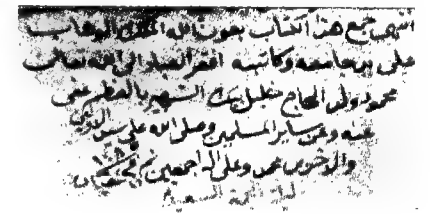 انتهى جمع هذا الكتاب بعون الله الملك الوهاب
على يد جامعه وكاتبه افقر العبيد الى الله تعالى
محمود ولد الحاج خليل الشهير بالعظم عفى
عنه وعن ساير المسلمين وصلى الله على سيد الاولين
والاخرين محمد وعلى اله اجمعين
ليلة الجمعة